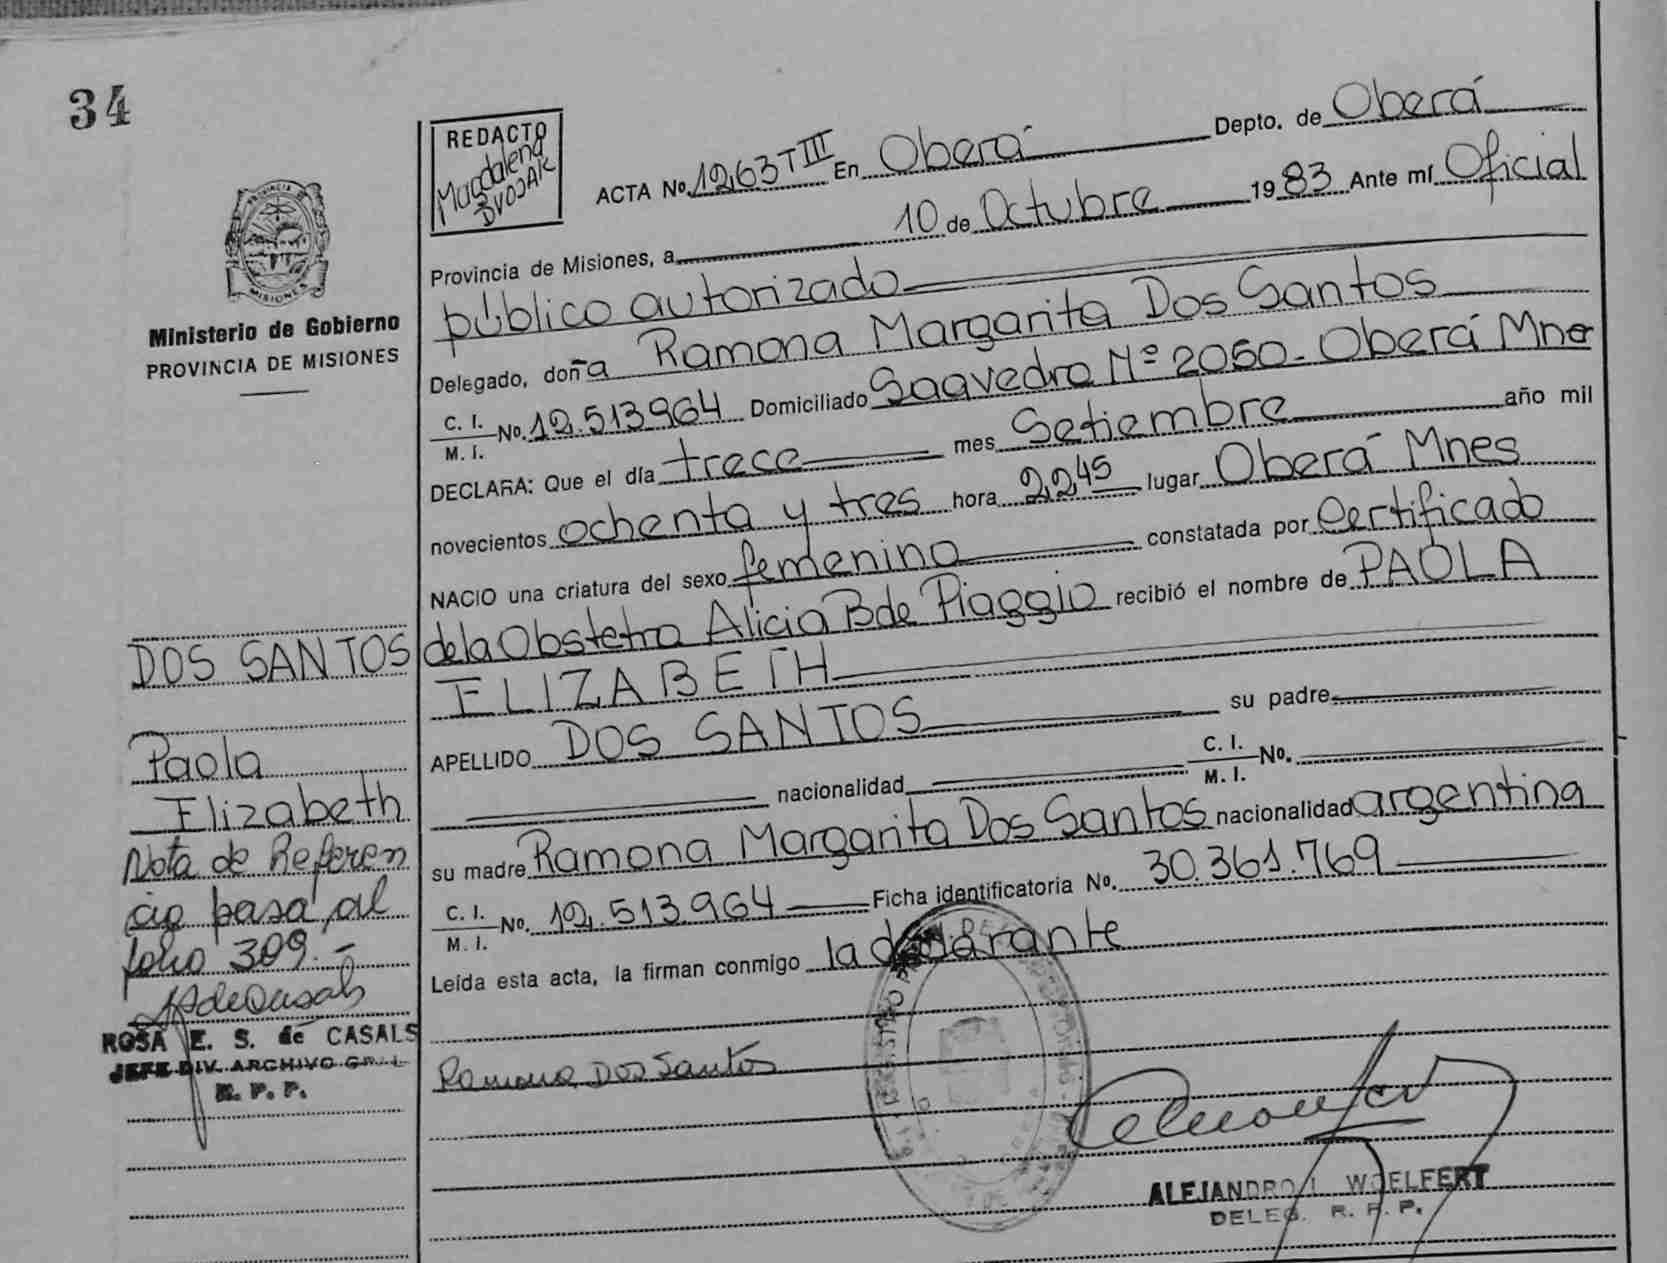 34
REDACTO
Magdalena
DVOJAK
ACTA No. 1263 T III En Oberá Depto. de Oberá
Provincia de Misiones, a 10 de Octubre 1983 Ante mí Oficial
público autorizado
Delegado, doña Ramona Margarita Dos Santos
C. I. M. I. No. 12.513964 Domiciliado Saavedra Nº 2050 - Oberá Mnes
DECLARA: Que el día trece mes Setiembre año mil
novecientos ochenta y tres hora 22,45 lugar Oberá Mnes
NACIO una criatura del sexo femenino constatada por Certificado
de la Obstetra Alicia B de Piaggio recibió el nombre de PAOLA
ELIZABETH
APELLIDO DOS SANTOS su padre
nacionalidad C. I. M. I. No.
su madre Ramona Margarita Dos Santos nacionalidad argentina
C. I. M. I. No. 12.513.964 Ficha identificatoria No. 30.361.769
Leída esta acta, la firman conmigo la declarante
Ramona Dos Santos
ALEJANDRO WOELFERT
DELEG. R. P. P.
PROVINCIA DE
MISIONES
Ministerio de Gobierno
PROVINCIA DE MISIONES
DOS SANTOS
Paola
Elizabeth
Nota de Referen
cia pasa al
folio 309.-
ROSA E. S. de CASALS
JEFE DIV. ARCHIVO GRAL
R. P. P.